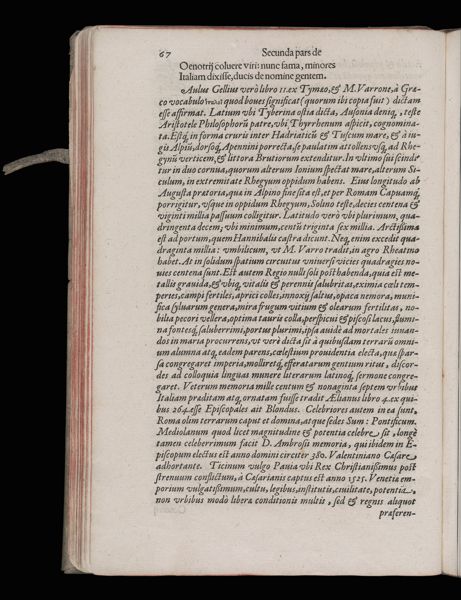 67 Secunda pars de
Oenotrij coluere viri: nunc fama, minores
Italiam dixisse, ducis de nomine gentem.
Aulus Gellius verò libro 11. ex Tymæo, & M. Varrone, à Græ-
co vocabulo quod boues significat (quorum ibi copia fuit) dictam
esse affirmat. Latium vbi Tyberina ostia dicta, Ausonia deniq;, teste
Aristotele Philosophorũ patre, vbi Thyrrhenum aspicit, cognomina-
ta. Estq; in forma cruris inter Hadriaticũ & Tuscum mare, & à iu-
gis Alpiũ, dorsoq; Apennini porrecta, se paulatim attollens vsq; ad Rhe-
gynũ verticem, & littora Brutiorum extenditur. In vltimo sui scindi-
tur in duo cornua, quorum alterum Ionium spectat mare, alterum Si-
culum, in extremitate Rhegyum oppidum habens. Eius longitudo ab
Augusta pretoria, quæ in Alpino sine sita est, et per Romam Capuamq;
porrigitur, vsque in oppidum Rhegyum, Solino teste, decies centena &
viginti millia passuum colligitur. Latitudo verò vbi plurimum, qua-
dringenta decem; vbi minimum, centũ triginta sex millia. Arctissima
est ad portum, quem Hannibalis castra dicunt. Neq; enim excedit qua-
draginta millia: vmbilicum, vt M. Varro tradit, in agro Rheatino
habet. At in solidum spatium circuitus vniuersi vicies quadragies no-
uies centena sunt. Est autem Regio nulli soli post habenda, quia est me-
tallis grauida, & vbiq; vitalis & perennis salubritas, eximia cœli tem-
peries, campi fertiles, aprici colles, innoxij saltus, opaca nemora, muni-
fica syluarum genera, mira frugum vitium & olearum fertilitas, no-
bilia pecori vellera, optima tauris colla, perspicui & piscosi lacus, flumi-
na fontesq; saluberrimi, portus plurimi, ipsa auidè ad mortales iuuan-
dos in maria procurrens, vt verè dicta sit à quibusdam terrarũ omni-
um alumna atq; eadem parens, cælestium prouidentia electa, quæ spar-
sa congregaret imperia, molliretq; efferatarum gentium ritus, discor-
des ad colloquia linguas munere literarum latinoq; sermone congre-
garet. Veterum memoria mille centum & nonaginta septem vrbibus
Italiam præditam atq; ornatam fuisse tradit Ælianus libro 4. ex qui-
bus 264. esse Episcopales ait Blondus. Celebriores autem in ea sunt,
Roma olim terrarum caput et domina, atque sedes Sum: Pontificum.
Mediolanum quod licet magnitudine & potentia celebre sit, longè
tamen celeberrimum facit D. Ambrosii memoria, qui ibidem in E-
piscopum electus est anno domini circiter 380. Valentiniano Cæsare
adhortante. Ticinum vulgo Pauia vbi Rex Christianißimus post
strenuum conflictum, à Cæsarianis captus est anno 1525. Venetia em-
porium vulgatißimum, cultu, legibus, institutis, ciuilitate, potentia,
non vrbibus modò libera conditionis multis, sed & regnis aliquot
præferen-